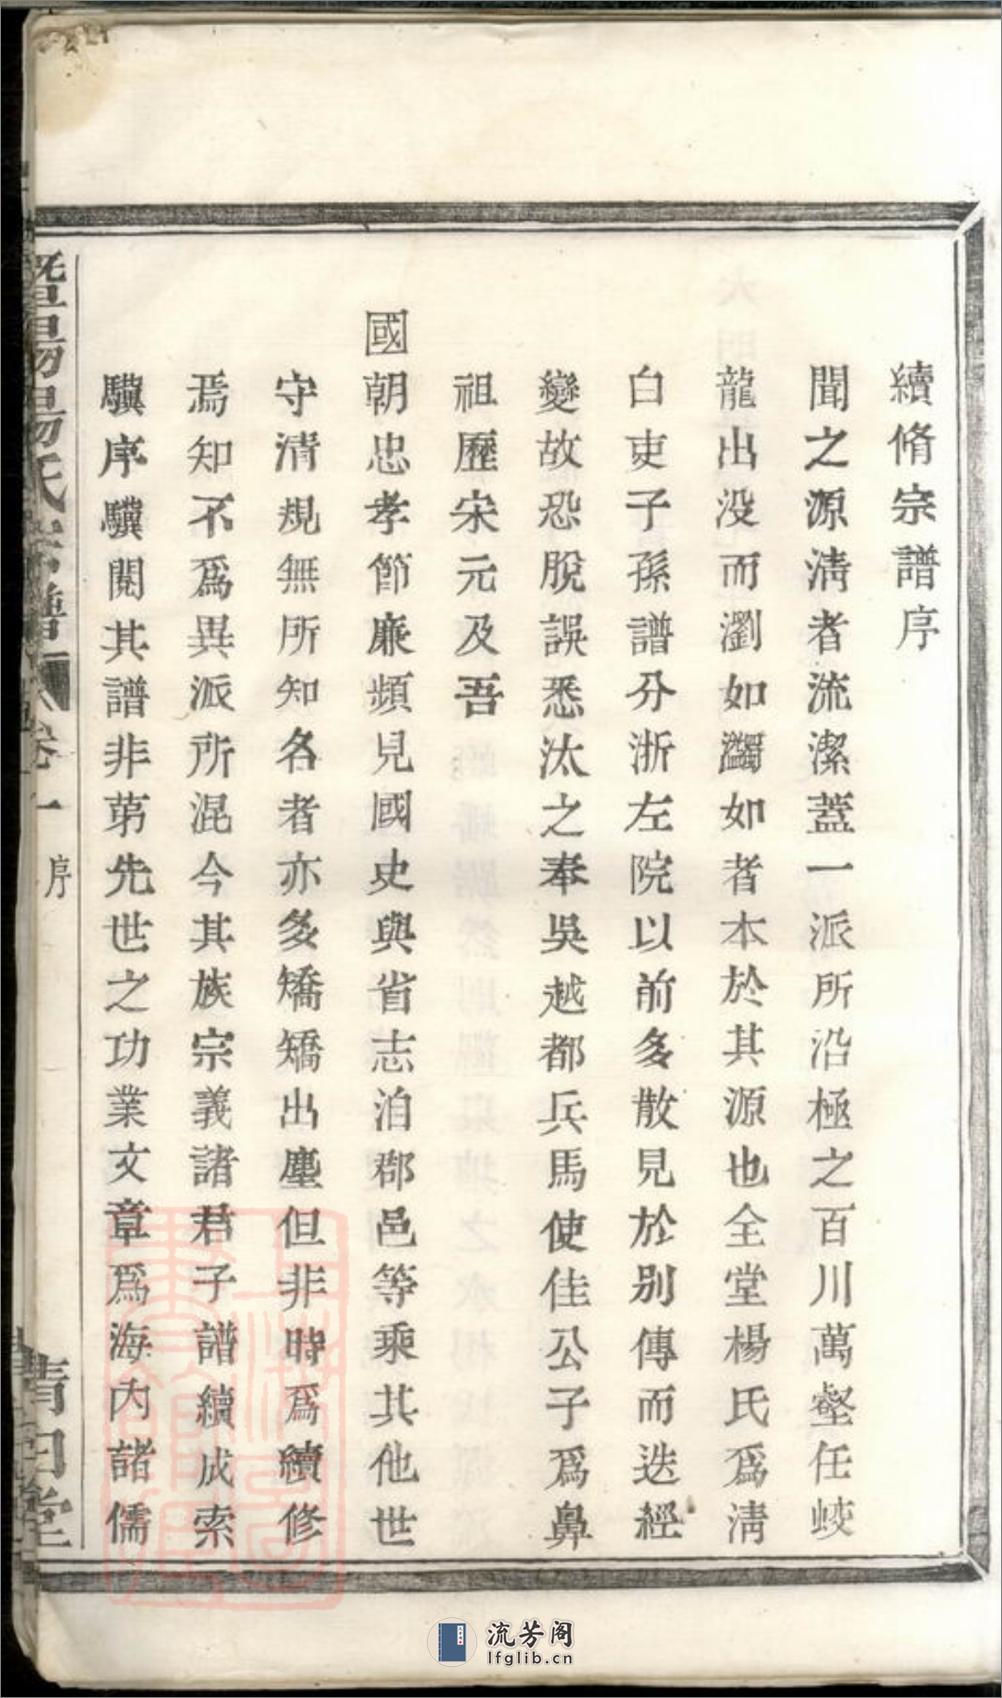 續脩宗譜序
聞之源淸者流潔蓋一派所沿極之百川萬壑任蛟
龍出没而瀏如濁如者本於其源也全堂楊氏爲淸
白吏子孫譜分浙左院以前多散見於别傳而迭經
變故恐脫誤悉汰之奉吳越都兵馬使佳公子爲鼻
祖歷宋元及吾
國朝忠孝節亷頻見國史與省志洎郡邑等乘其他世
守清規無所知名者亦多矯矯出塵但非時爲續修
焉知不爲異派所混今其族宗義諸君子譜續成索
驥序驥閱其譜非苐先世之功業文章爲海内諸儒
暨陽楊氏宗譜
卷一
序
清白堂
流芳阁
lfglib.cn